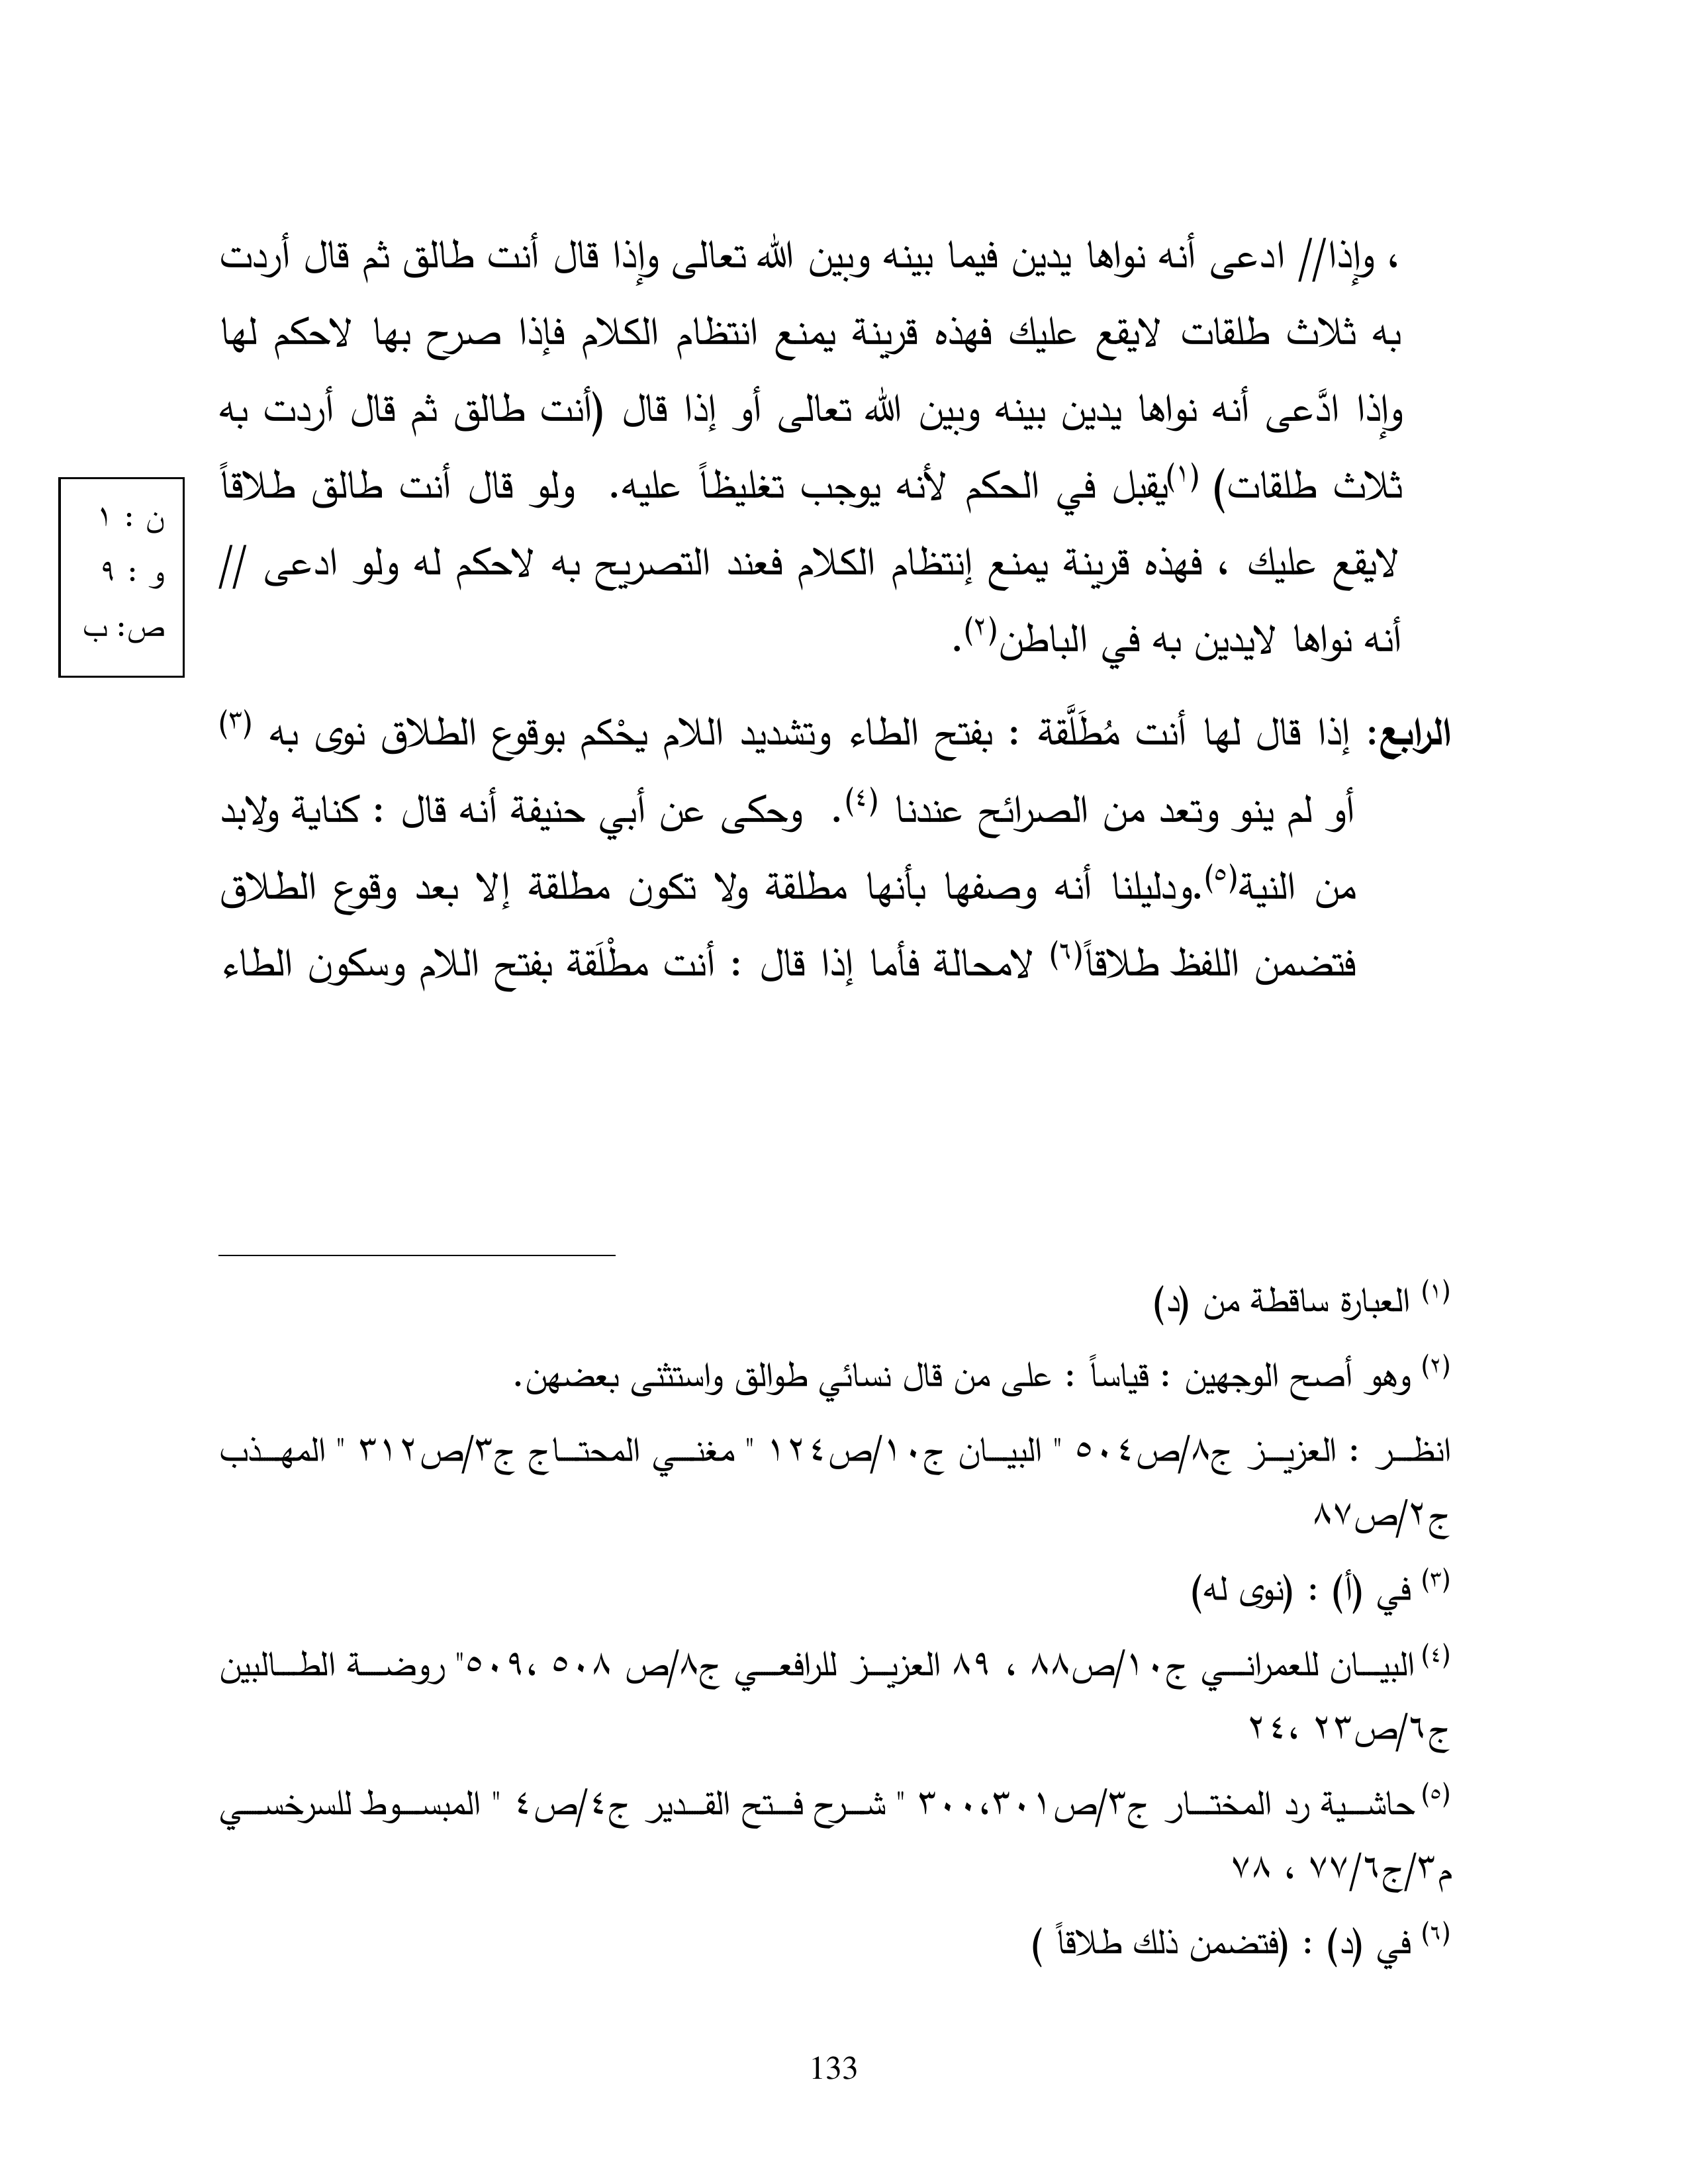 ، وإذا// ادعى أنه نواها يدين فيما بينه وبين الله تعالى وإذا قال أنت طالق ثم قال أردت
به ثلاث طلقات لايقع عليك فهذه قرينة يمنع انتظام الكلام فإذا صرح بها لاحكم لها
وإذا ادَّعى أنه نواها يدين بينه وبين الله تعالى أو إذا قال (أنت طالق ثم قال أردت به
ثلاث طلقات) (١)يقبل في الحكم لأنه يوجب تغليظاً عليه. ولو قال أنت طالق طلاقاً
لايقع عليك ، فهذه قرينة يمنع إنتظام الكلام فعند التصريح به لاحكم له ولو ادعى //
أنه نواها لايدين به في الباطن(٢).
ن : ١
و : ٩
ص: ب
الرابع: إذا قال لها أنت مُطَلَّقة : بفتح الطاء وتشديد اللام يحْكم بوقوع الطلاق نوى به (٣)
أو لم ينو وتعد من الصرائح عندنا (٤). وحكى عن أبي حنيفة أنه قال : كناية ولابد
من النية(٥).ودليلنا أنه وصفها بأنها مطلقة ولا تكون مطلقة إلا بعد وقوع الطلاق
فتضمن اللفظ طلاقاً(٦) لامحالة فأما إذا قال : أنت مطْلَقة بفتح اللام وسكون الطاء
(١) العبارة ساقطة من (د)
(٢) وهو أصح الوجهين : قياساً : على من قال نسائي طوالق واستثنى بعضهن.
انظر : العزيز ج٨/ص٥٠٤ " البيان ج١٠/ص١٢٤ " مغني المحتاج ج٣/ص٣١٢ " المهذب
ج٢/ص٨٧
(٣) في (أ) : (نوى له)
(٤) البيان للعمراني ج١٠/ص٨٨ ، ٨٩ العزيز للرافعي ج٨/ص ٥٠٨ ،٥٠٩" روضة الطالبين
ج٦/ص٢٣ ،٢٤
(٥) حاشية رد المختار ج٣/ص٣٠٠،٣٠١ " شرح فتح القدير ج٤/ص٤ " المبسوط للسرخسي
م٣/ج٦/٧٧ ، ٧٨
(٦) في (د) : (فتضمن ذلك طلاقاً )
133